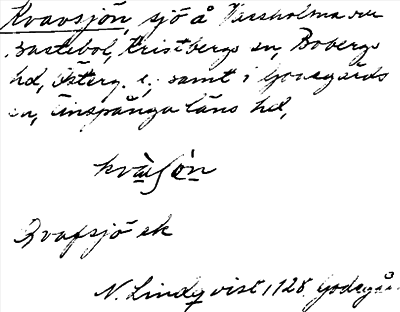 Kvavsjön, sjö å Vassholma
Bastebol, Kristbergs sn, Bobergs
hd, Österg. l., samt i Godegårds
sn, Finspånga läns hd,
kvàʃòn
Qvafsjö ek
N. Lindqvist, 1128 Godegå